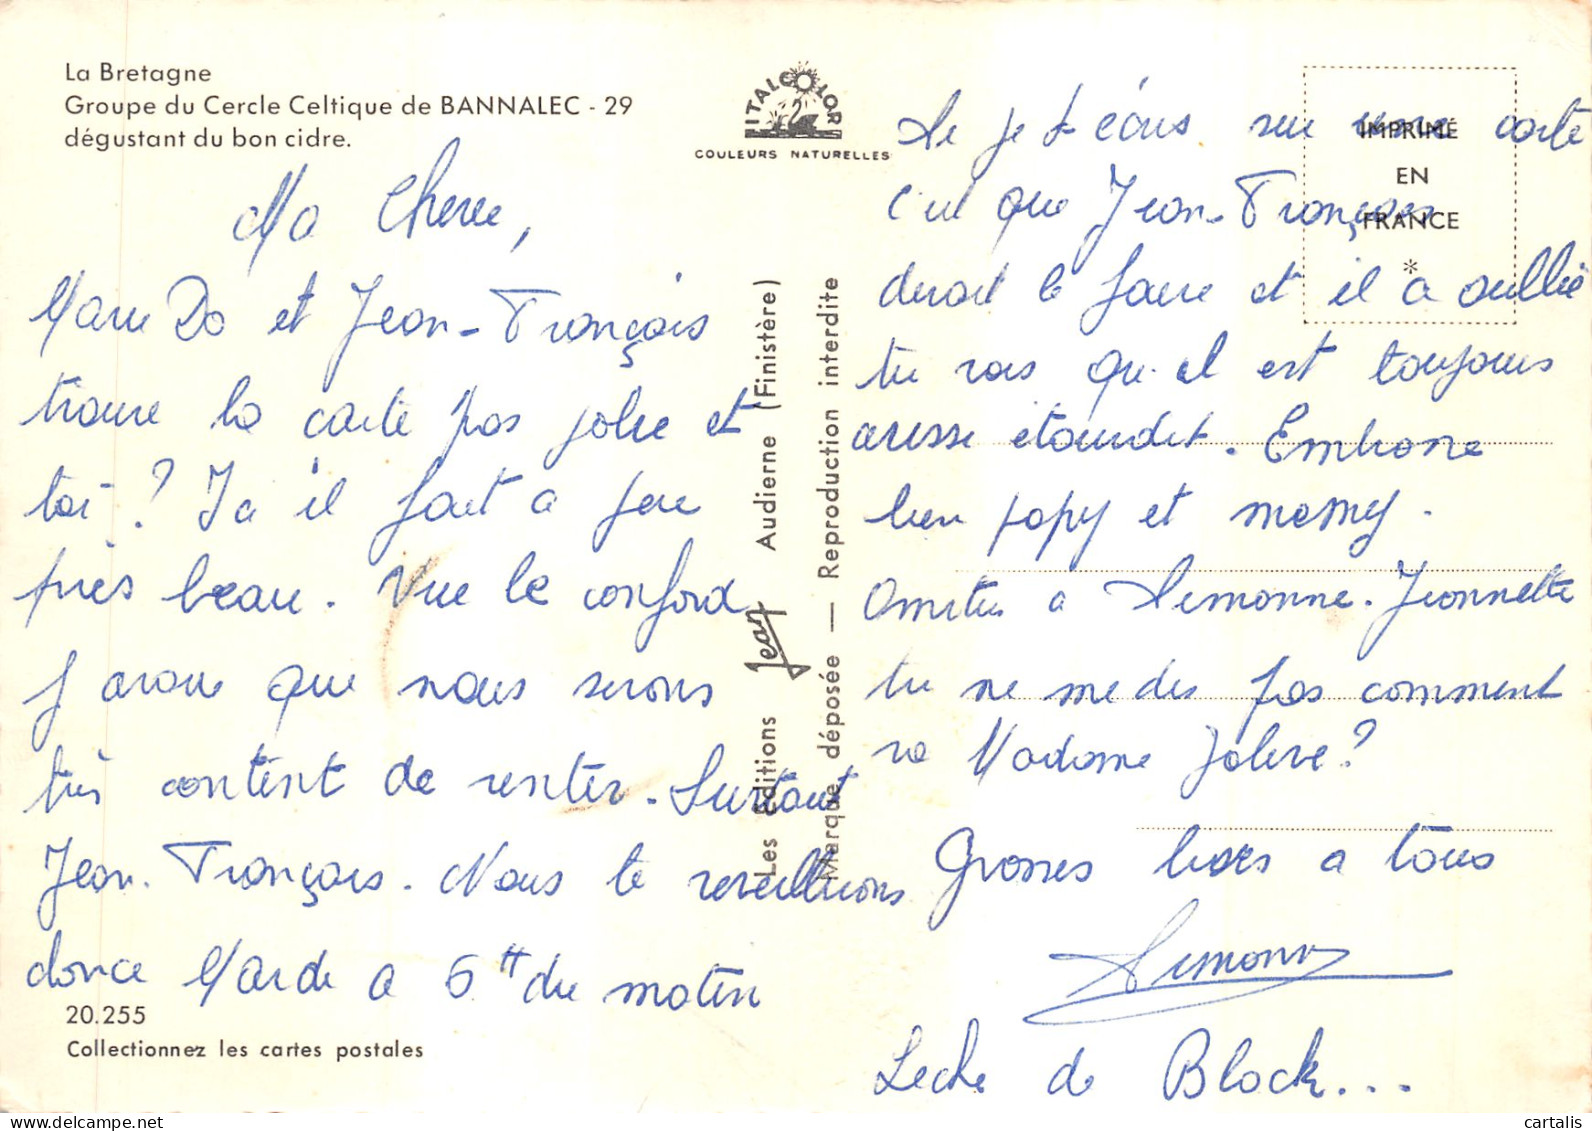 La Bretagne
Groupe du Cercle Celtique de BANNALEC - 29
dégustant du bon cidre.
ITALCOLOR
COULEURS NATURELLES
IMPRIMÉ
EN
FRANCE
*
Ma Cherie,
Marie Do et Jean-François
trouve la carte pas jolie et
toi ? Ici il fait a peu
près beau. Vue le conford
j avoue que nous serons
très content de renter. Surtout
Jean-François. Nous te reveillerons
donce Marde a 6 H du matin
20.255
Collectionnez les cartes postales
Les éditions Jean Audierne (Finistère)
Marque déposée — Reproduction interdite
Si je t écris sur une carte
c'est que Jean-François
devait le faire et il a oublié
tu vois qu'il est toujours
ausse étourdit. Embrasse
bien papy et mamy.
Amities a Simonne. Jeannette
tu ne me dis pas comment
va Madame Jolive?
Grosses bises a tous
Simonne
Leche de Block...
cartalis